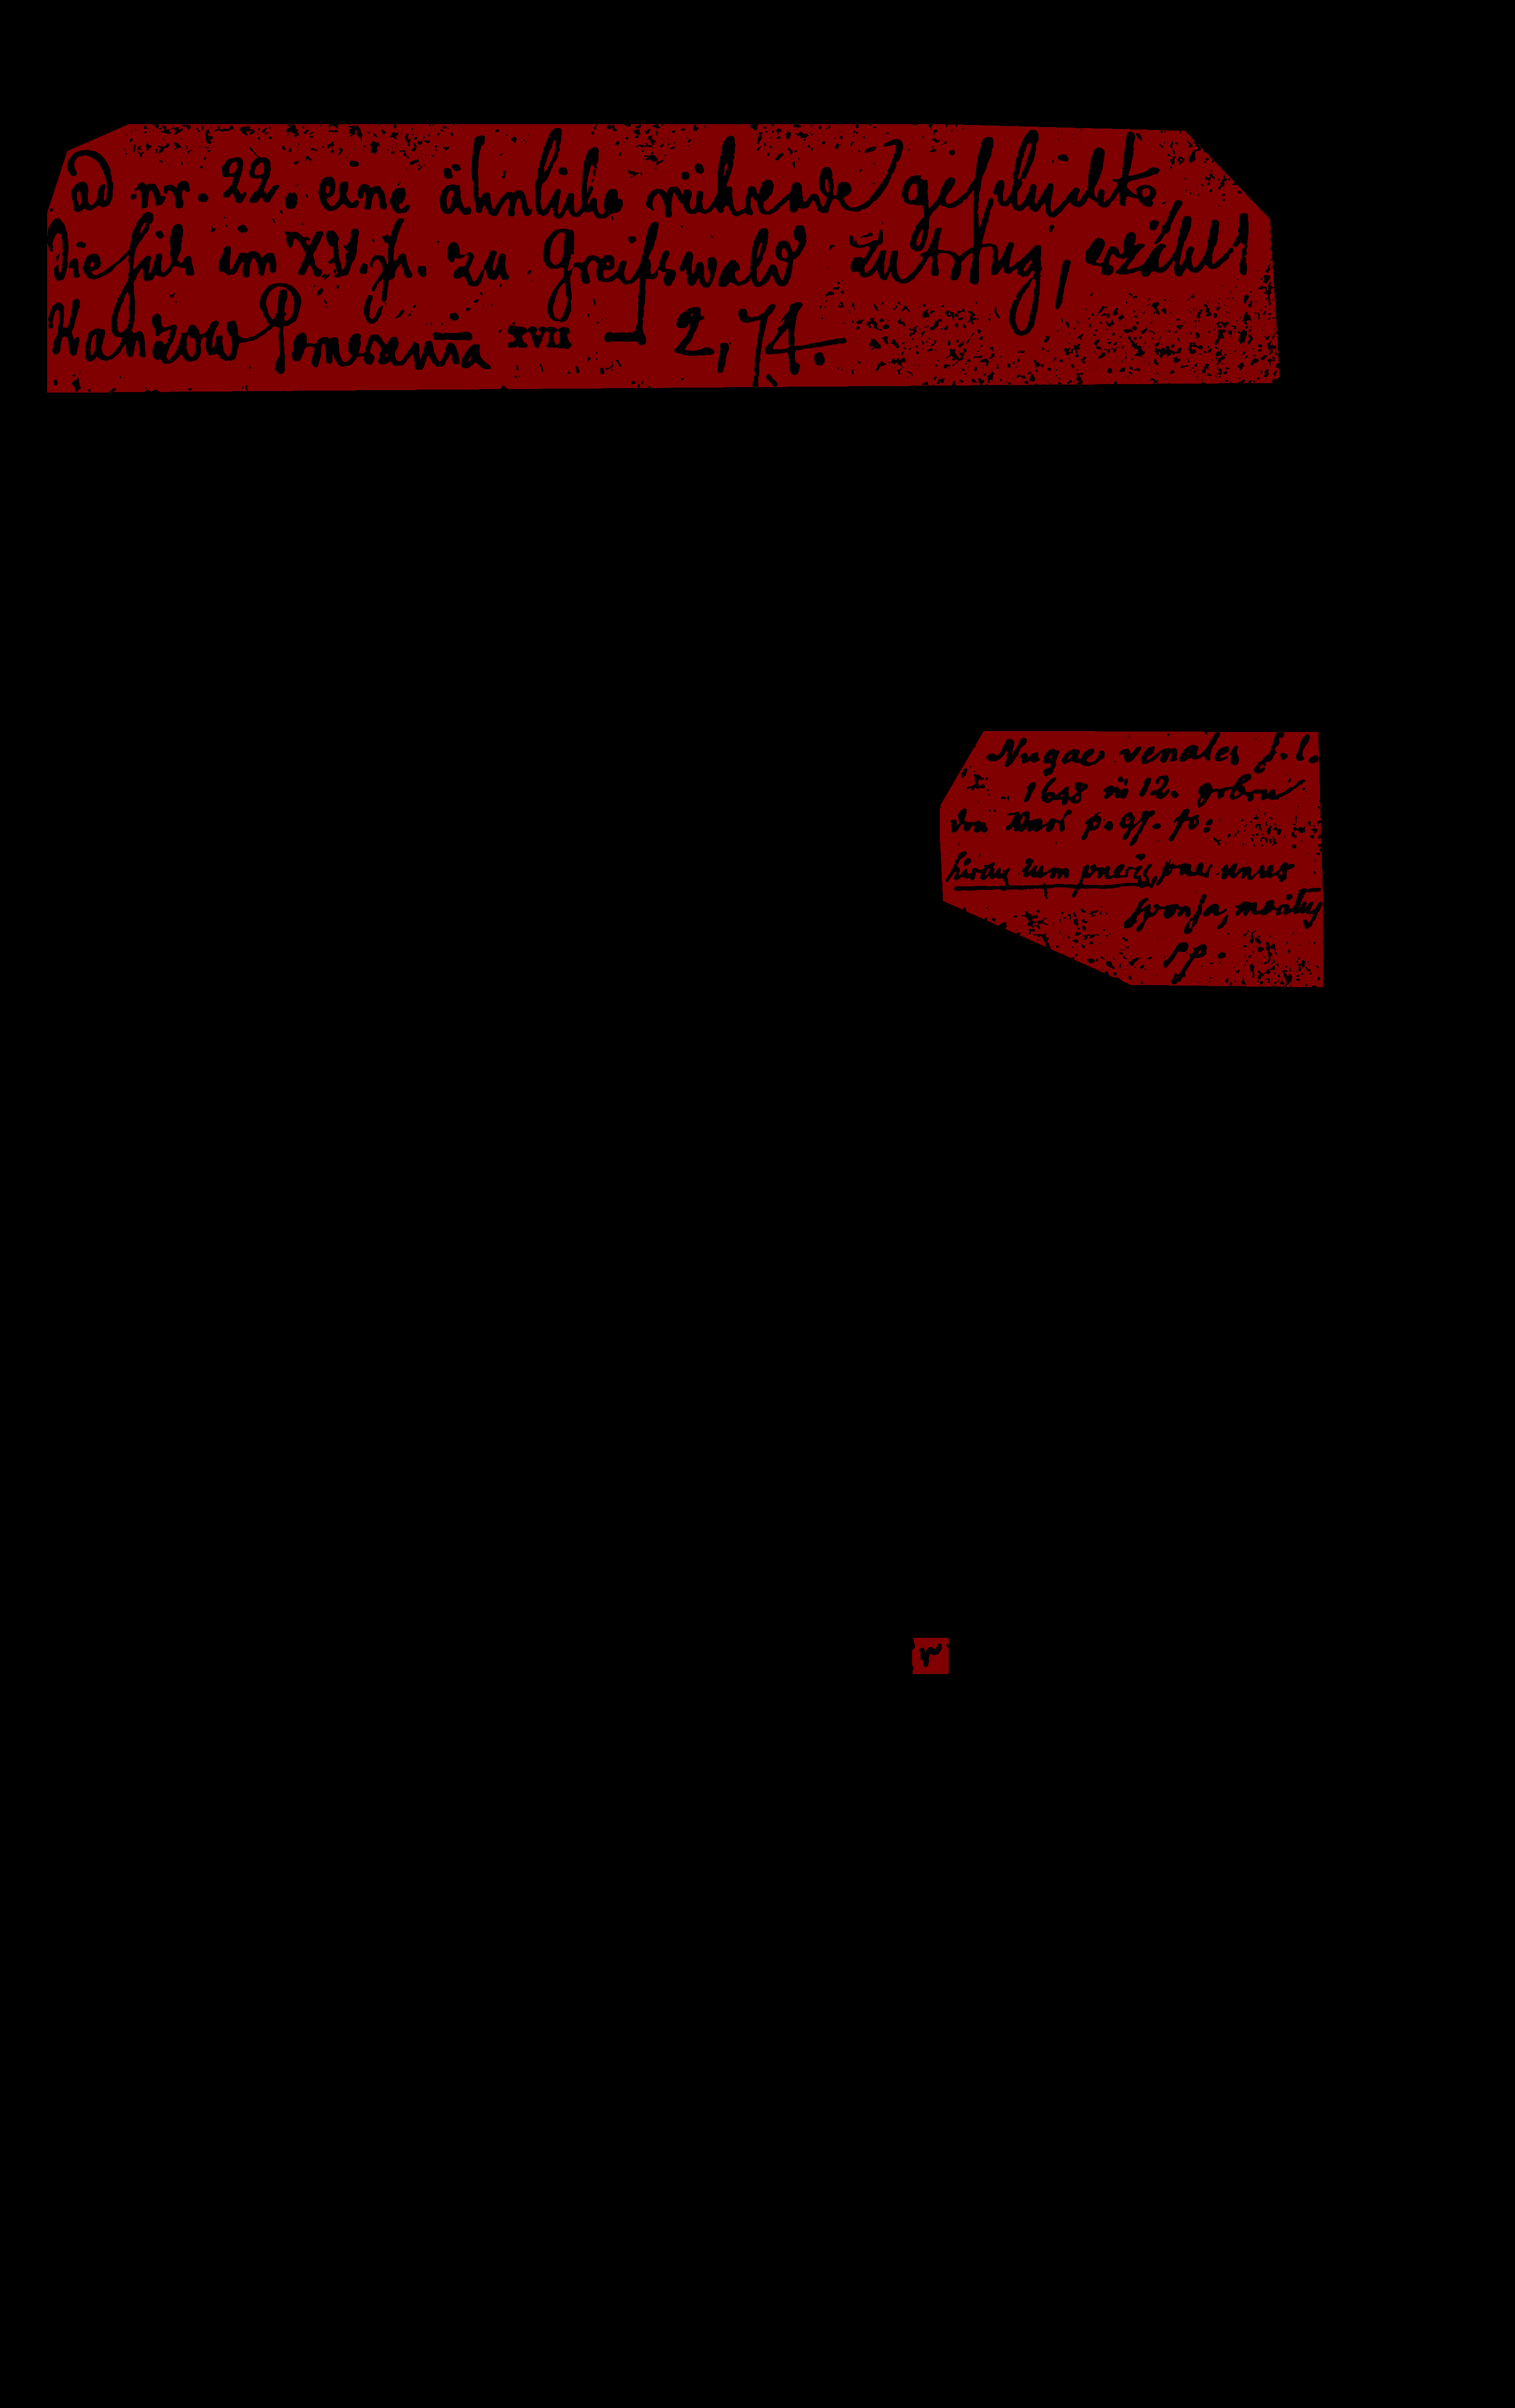 ad nr. 22. eine ähnliche rührende geschichte
die sich im XV. jh. zu Greifswald zutrug, erzählt
Kanzow Pomerania XVII — 2, 74.
Nugae venales s. l.
1648 in 12. geben
den Vers p. 97. so:
hircus cum pueris, puer unus
sponsa, maritus
pp.
r